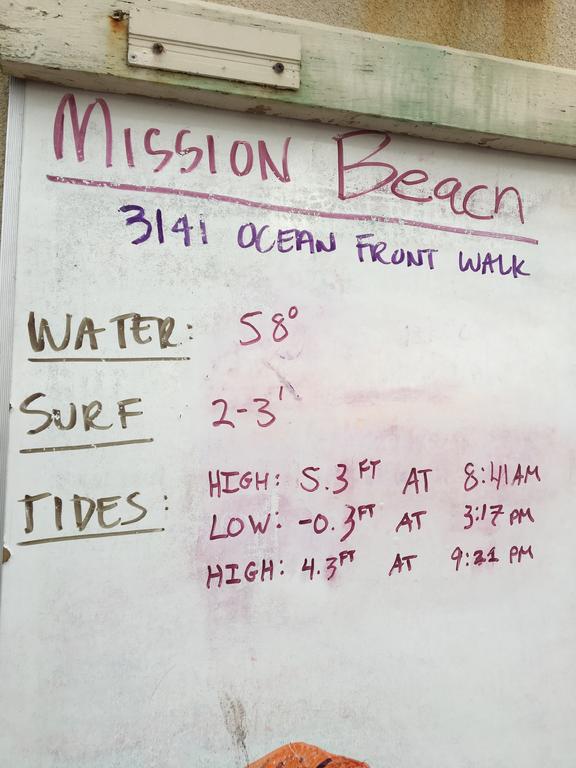 Mission Beach
3141 OCEAN FRONT WALK
WATER: 58°
SURF 2-3'
TIDES: HIGH: 5.3 FT AT 8:41 AM
LOW: -0.3 FT AT 3:17 PM
HIGH: 4.3 FT AT 9:21 PM